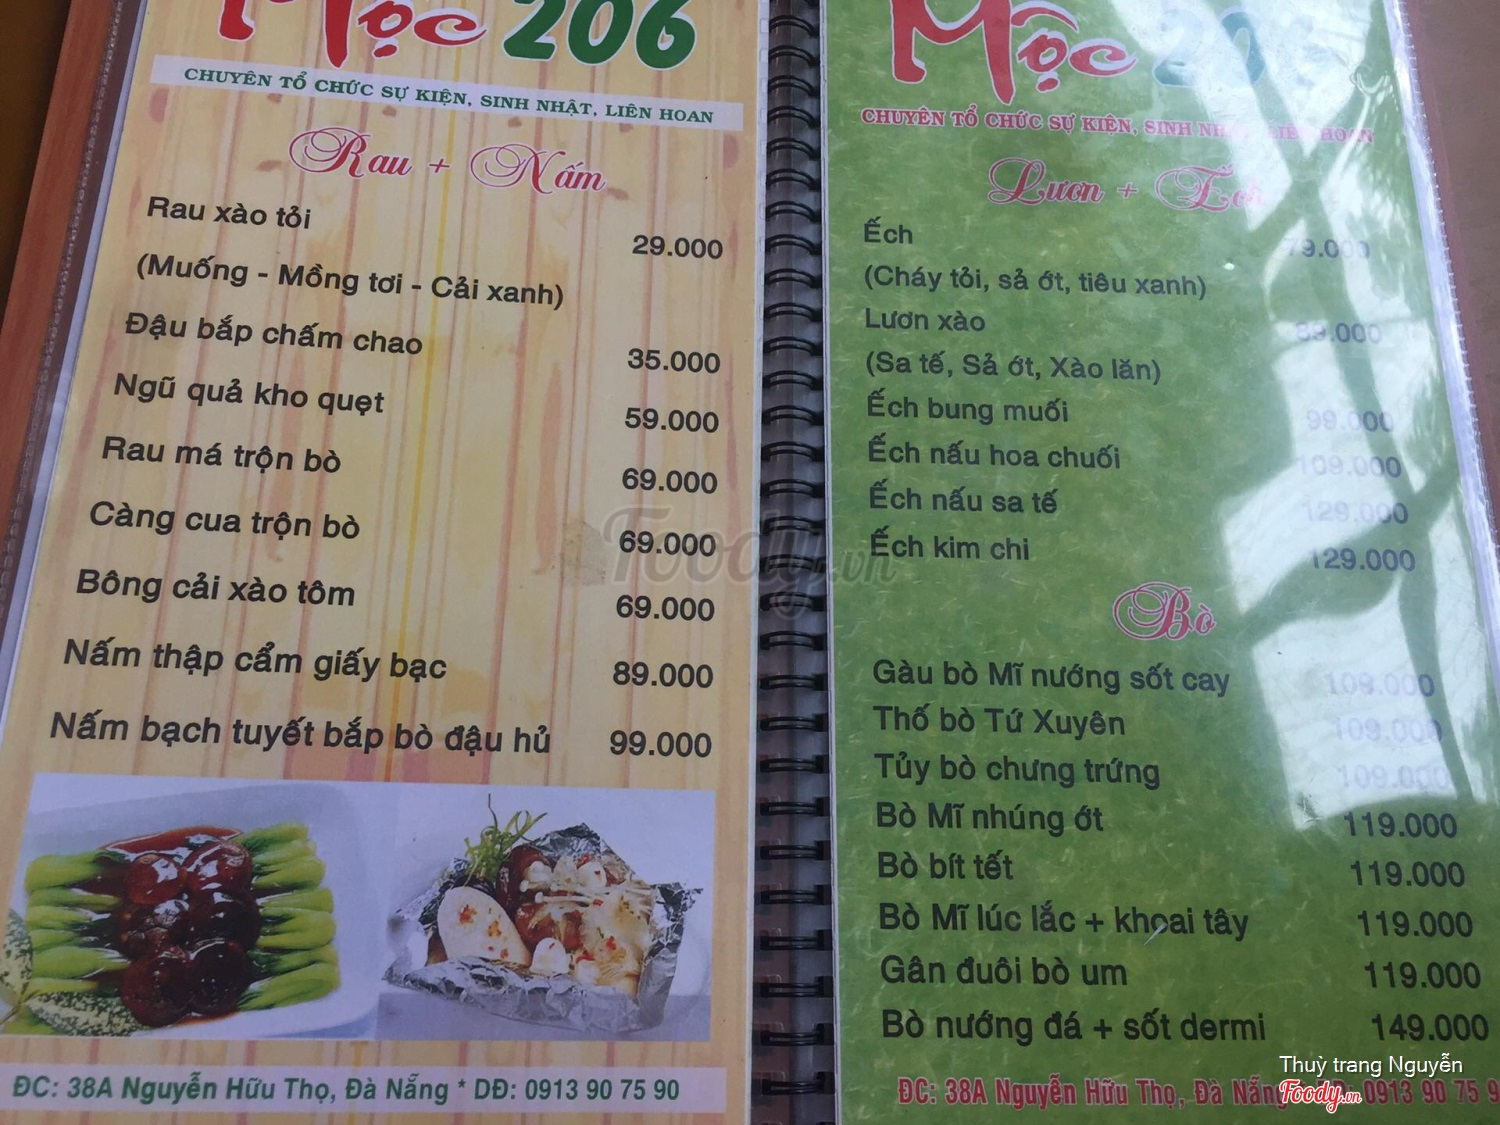 Mộc 206
CHUYÊN TỔ CHỨC SỰ KIỆN, SINH NHẬT, LIÊN HOAN
Rau + Nấm
Rau xào tỏi 29.000
(Muống - Mồng tơi - Cải xanh)
Đậu bắp chấm chao 35.000
Ngũ quả kho quẹt 59.000
Rau má trộn bò 69.000
Càng cua trộn bò 69.000
Bông cải xào tôm 69.000
Nấm thập cẩm giấy bạc 89.000
Nấm bạch tuyết bắp bò đậu hủ 99.000
ĐC: 38A Nguyễn Hữu Thọ, Đà Nẵng * DĐ: 0913 90 75 90
Mộc 206
CHUYÊN TỔ CHỨC SỰ KIỆN, SINH NHẬT, LIÊN HOAN
Lươn + Ếch
Ếch 79.000
(Cháy tỏi, sả ớt, tiêu xanh)
Lươn xào 89.000
(Sa tế, Sả ớt, Xào lăn)
Ếch bung muối 99.000
Ếch nấu hoa chuối 109.000
Ếch nấu sa tế 129.000
Ếch kim chi 129.000
Bò
Gàu bò Mĩ nướng sốt cay 109.000
Thố bò Tứ Xuyên 109.000
Tủy bò chưng trứng 109.000
Bò Mĩ nhúng ớt 119.000
Bò bít tết 119.000
Bò Mĩ lúc lắc + khoai tây 119.000
Gân đuôi bò um 119.000
Bò nướng đá + sốt dermi 149.000
ĐC: 38A Nguyễn Hữu Thọ, Đà Nẵng 0913 90 75 9
Foody.vn
Thuỳ trang Nguyễn
Foody.vn